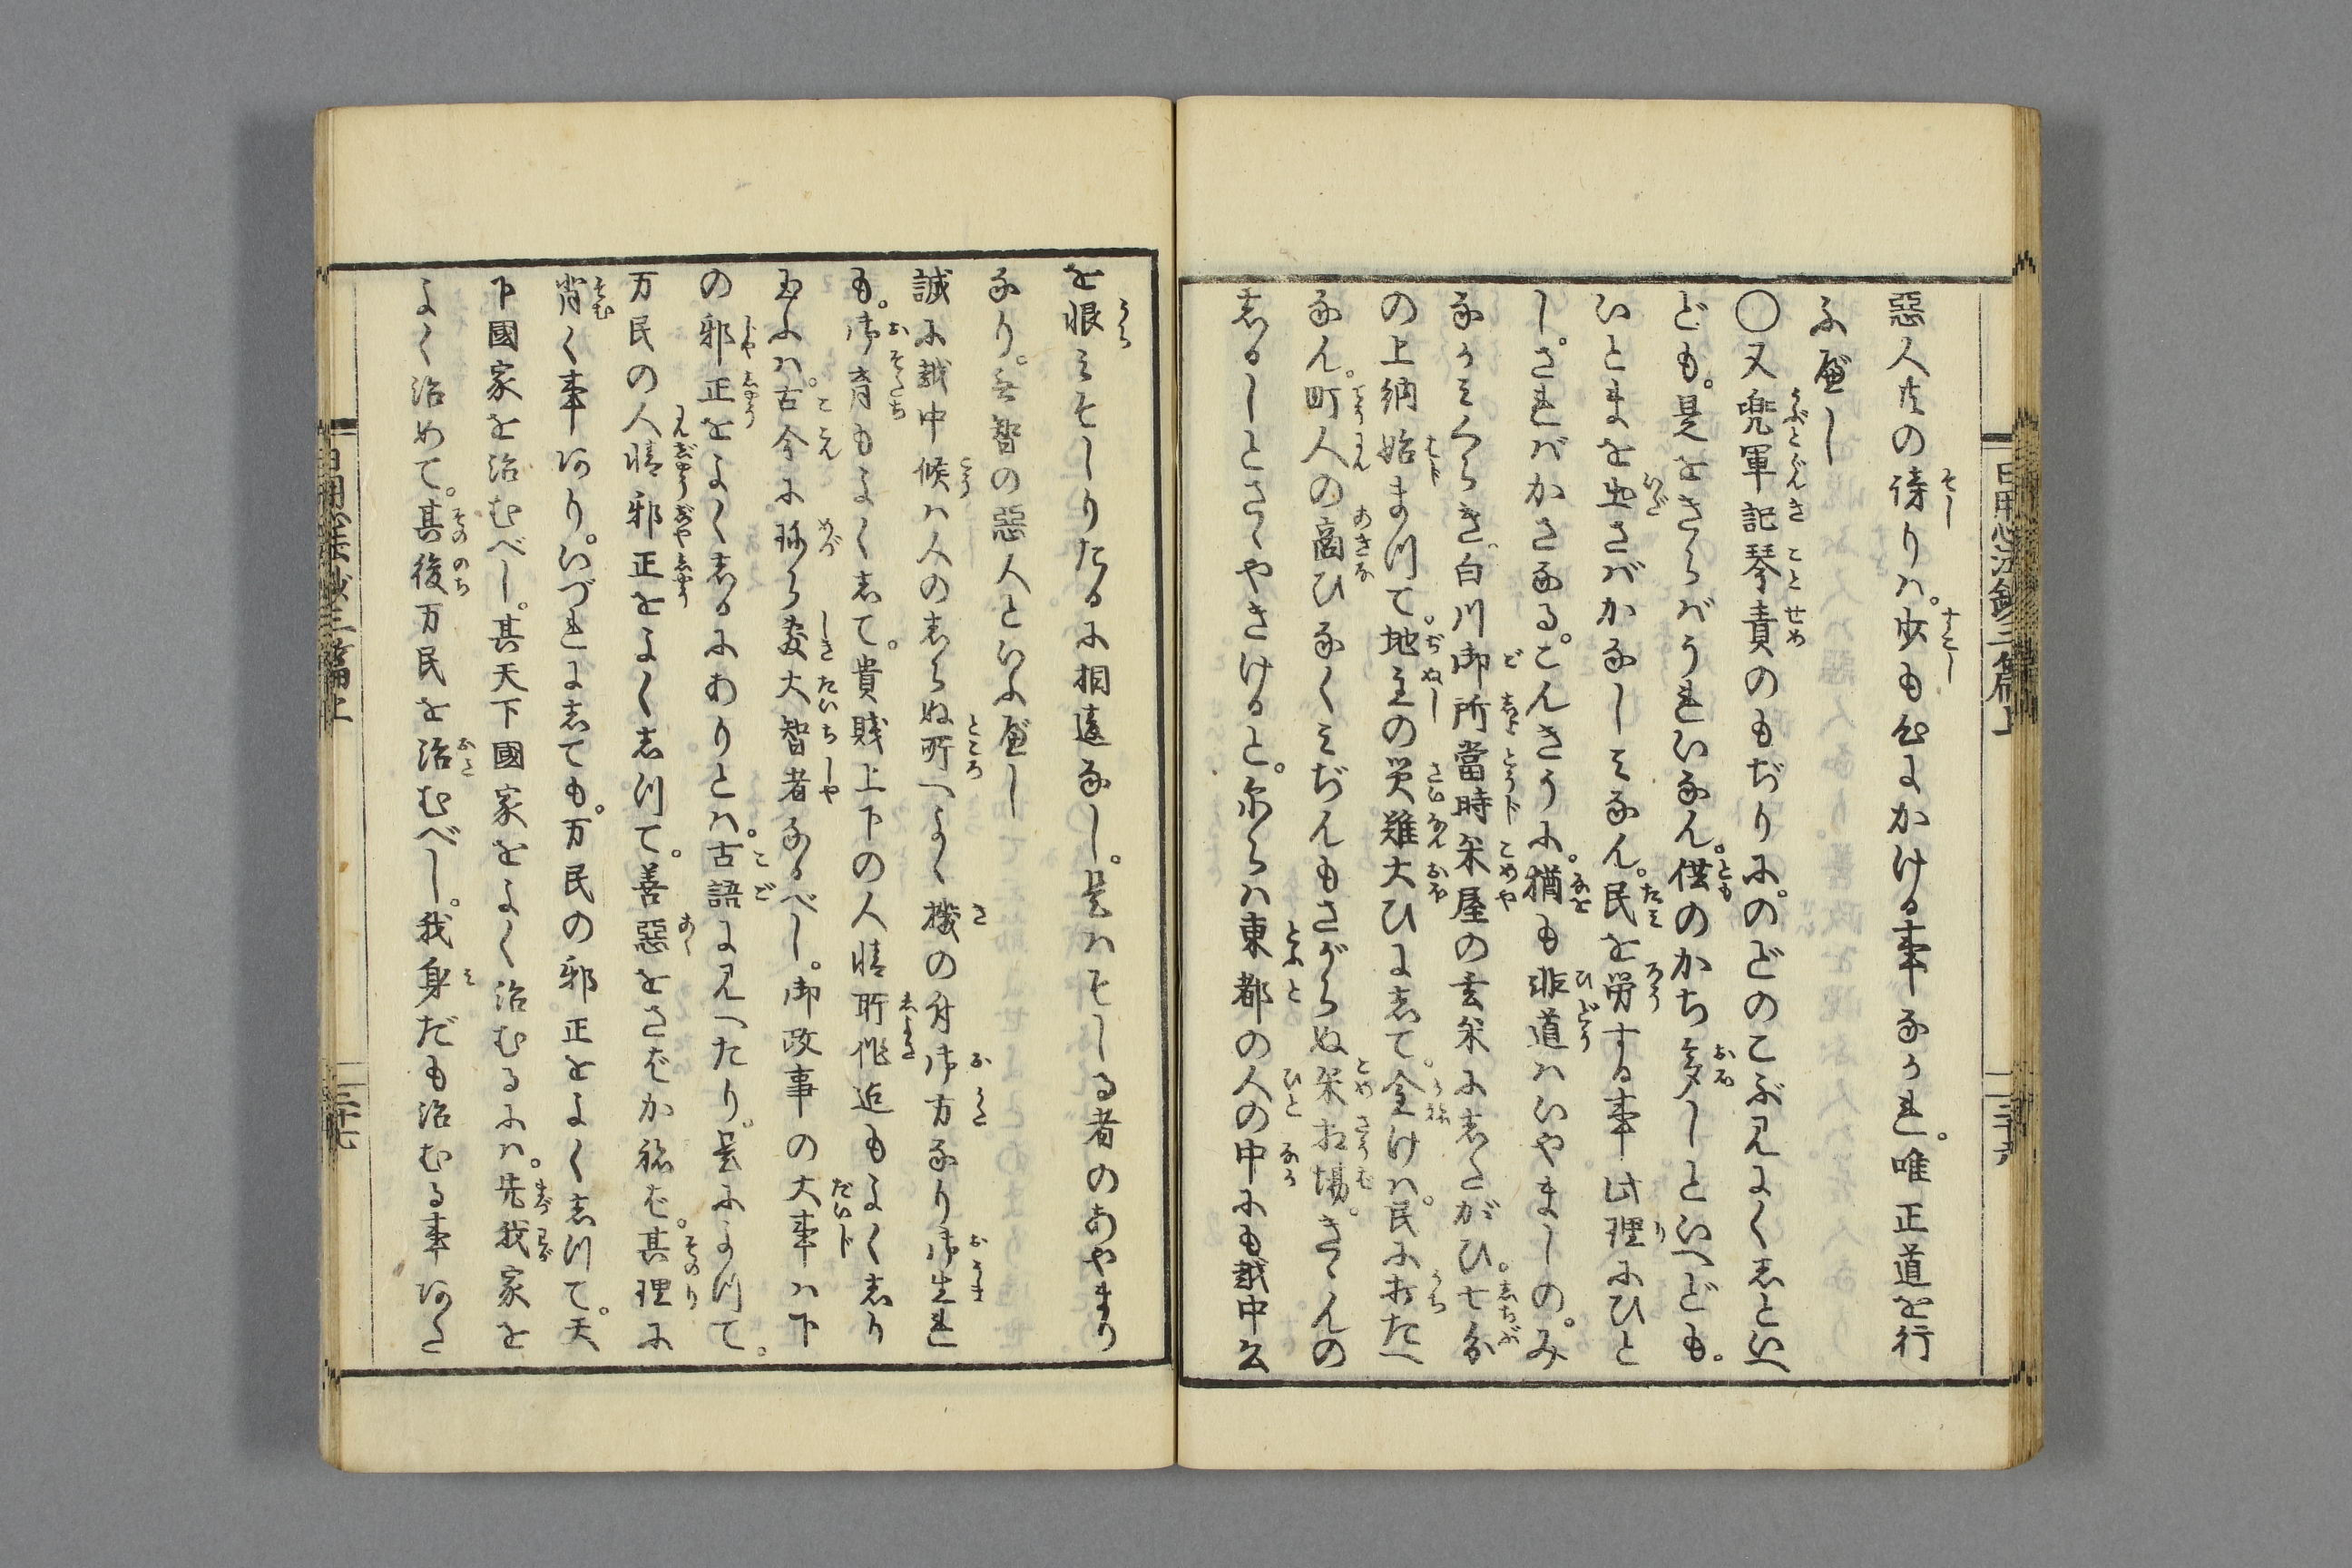 惡人共の謗りハ。少も心よかける事なかれ。唯正道を行
ふべし
〇又兜軍記琴責のもぢりに。のどのこぶ見よくしといへ
ども。是をきらバうれいなん。供のかち多しといへども。
いとまを出さバかなしみなん。民を労する事此理にひと
し。されバかさなる。こんきうに。猶も非道ハいやましの。み
なかみくらき。白川御所當時米屋の玄米にしたがひ。七分
の上納始まつて。地主の災難大ひよして。金けハ。民におたへ
なん。町人の商ひなくみぢんもさがらぬ米相場。きゝんの
しるしとさゝやきけると。尓らハ東都の人の中にも越中公
を恨みそしりたるに相違なし。是ハそしる者のあやまり
なり。無智の惡人といふべし
誠に越中候ハ人のしらぬ所へよく機の付御方なり御生れ
も。御育もよくして。貴賎上下の人情所作迄もよくしり
玉ふハ。古今に珍らき大智者なるべし。御政事の大事ハ下
の邪正をよくしるにありとハ。古語よ見へたり。是によつて。
万民の人情邪正をよくしつて。善惡をさばかねば。其理に
背く事あり。いづれよしても。万民の邪正をよくしつて。天
下國家を治むべし。其天下國家をよく治むるにハ。先我家を
よく治めて。其後万民を治むべし。我身だも治むる事あた
日用心法鈔三篇上
三十六
日用心法鈔三篇上
三十七